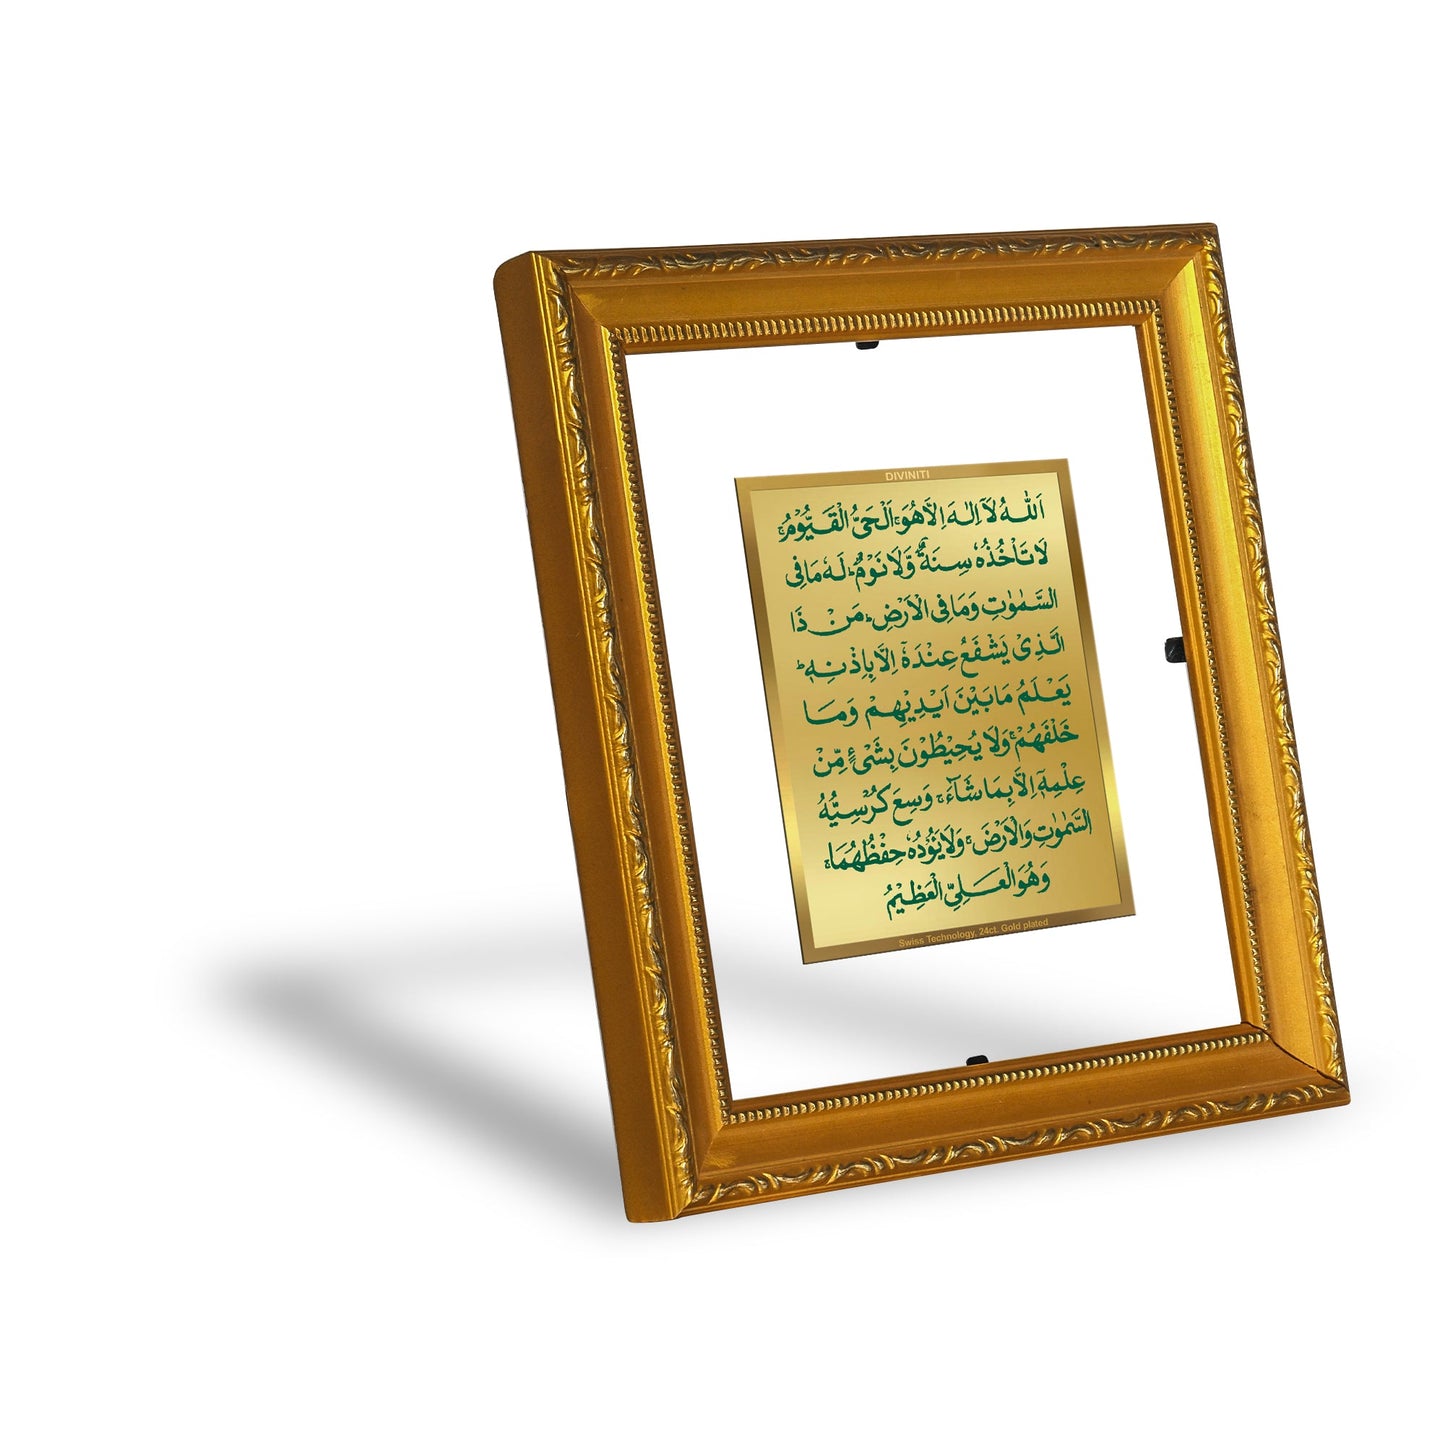 DIVINITI
اَللّٰهُ لَآ اِلٰهَ اِلَّا هُوَ ۚ اَلْحَیُّ الْقَیُّوْمُ ۚ
لَا تَاْخُذُهٗ سِنَةٌ وَّلَا نَوْمٌ ؕ لَهٗ مَا فِی
السَّمٰوٰتِ وَمَا فِی الْاَرْضِ ؕ مَنْ ذَا
الَّذِیْ یَشْفَعُ عِنْدَهٗۤ اِلَّا بِاِذْنِهٖ ؕ
یَعْلَمُ مَا بَیْنَ اَیْدِیْهِمْ وَمَا
خَلْفَهُمْ ۚ وَلَا یُحِیْطُوْنَ بِشَیْءٍ مِّنْ
عِلْمِهٖۤ اِلَّا بِمَا شَآءَ ۚ وَسِعَ كُرْسِیُّهُ
السَّمٰوٰتِ وَالْاَرْضَ ۚ وَلَا یَؤُدُهٗ حِفْظُهُمَا ۚ
وَهُوَ الْعَلِیُّ الْعَظِیْمُ
Swiss Technology, 24ct. Gold plated